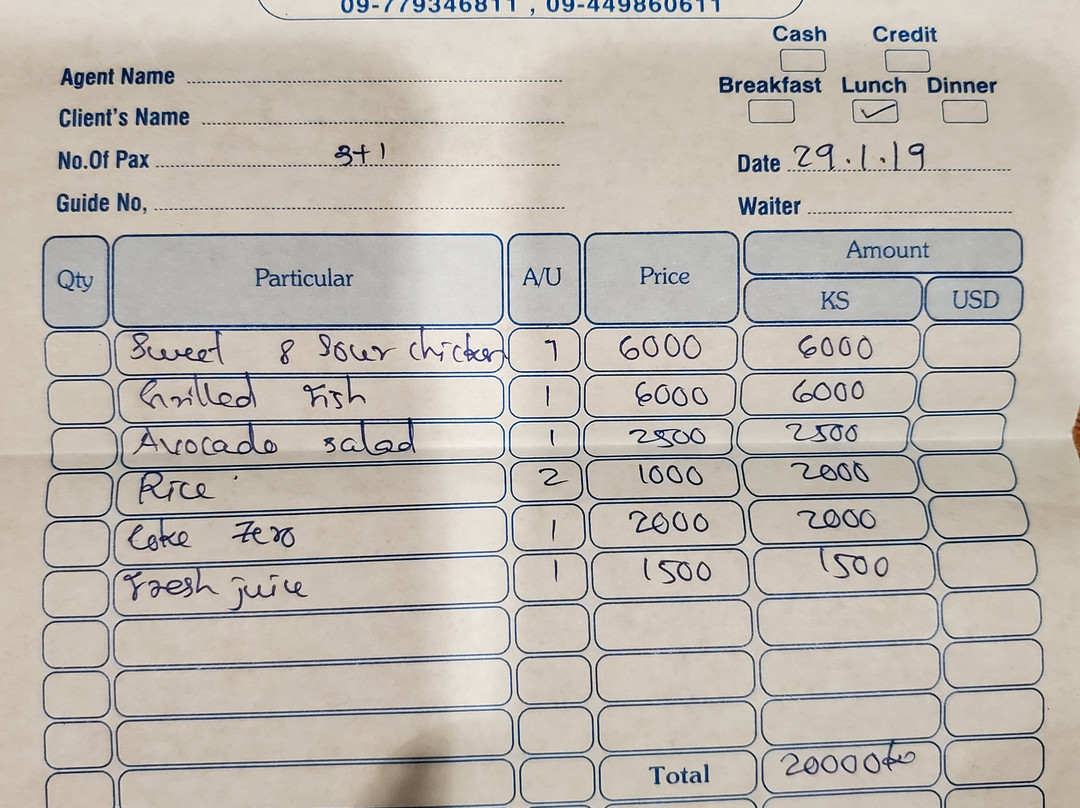 09-779346811 , 09-449860611
Cash Credit
Agent Name
Breakfast Lunch Dinner
Client's Name
No.Of Pax 3+1
Date 29.1.19
Guide No,
Waiter
Qty Particular A/U Price Amount
KS USD
Sweet & Sour chicken 1 6000 6000
Grilled fish 1 6000 6000
Avocado salad 1 2500 2500
Rice 2 1000 2000
Coke Zero 1 2000 2000
Fresh juice 1 1500 1500
Total 20000